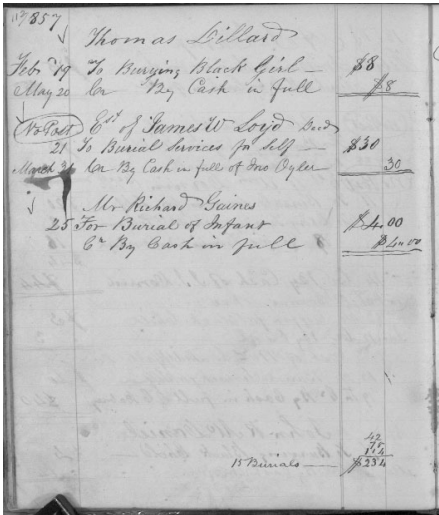 1857
Thomas Dillard
Feby 19 To Burying Black Girl — $8
May 20 Cr By Cash in full $8
No Post Est of James W Loyd Decd
21 To Burial Services for Self — $30
March 31 Cr By Cash in full of Jno Oyler 30
Mr Richard Gaines
25 For Burial of Infant $4.00
Cr By Cash in full $4.00
42
78
114
15 Burials — $234